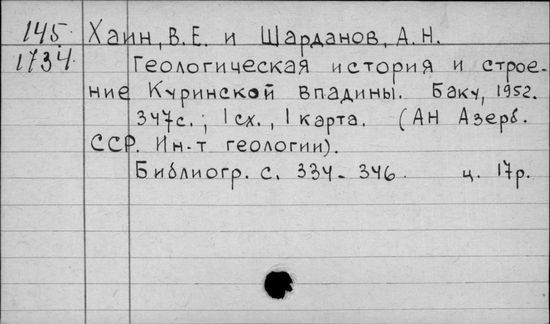 145. Хаин, В.Е. и Шарданов, А.Н.
1734 Геологическая история и строе-
ние Куринской впадины. Баку, 1952.
347с.; 1 сх., 1 карта. (АН Азерб.
ССР. Ин-т геологии).
Библиогр. с. 334-346. ц. 17р.